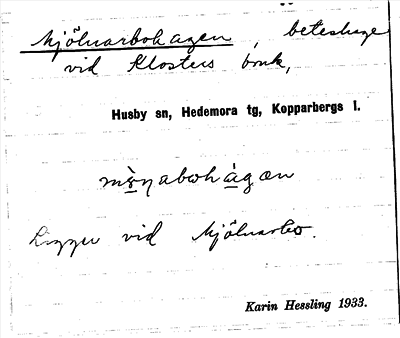 Mjölnarbohagen, beteshage
vid Klosters bruk,
Husby sn, Hedemora tg, Kopparbergs l.
Ligger vid Mjölnarbo.
Karin Hessling 1933.